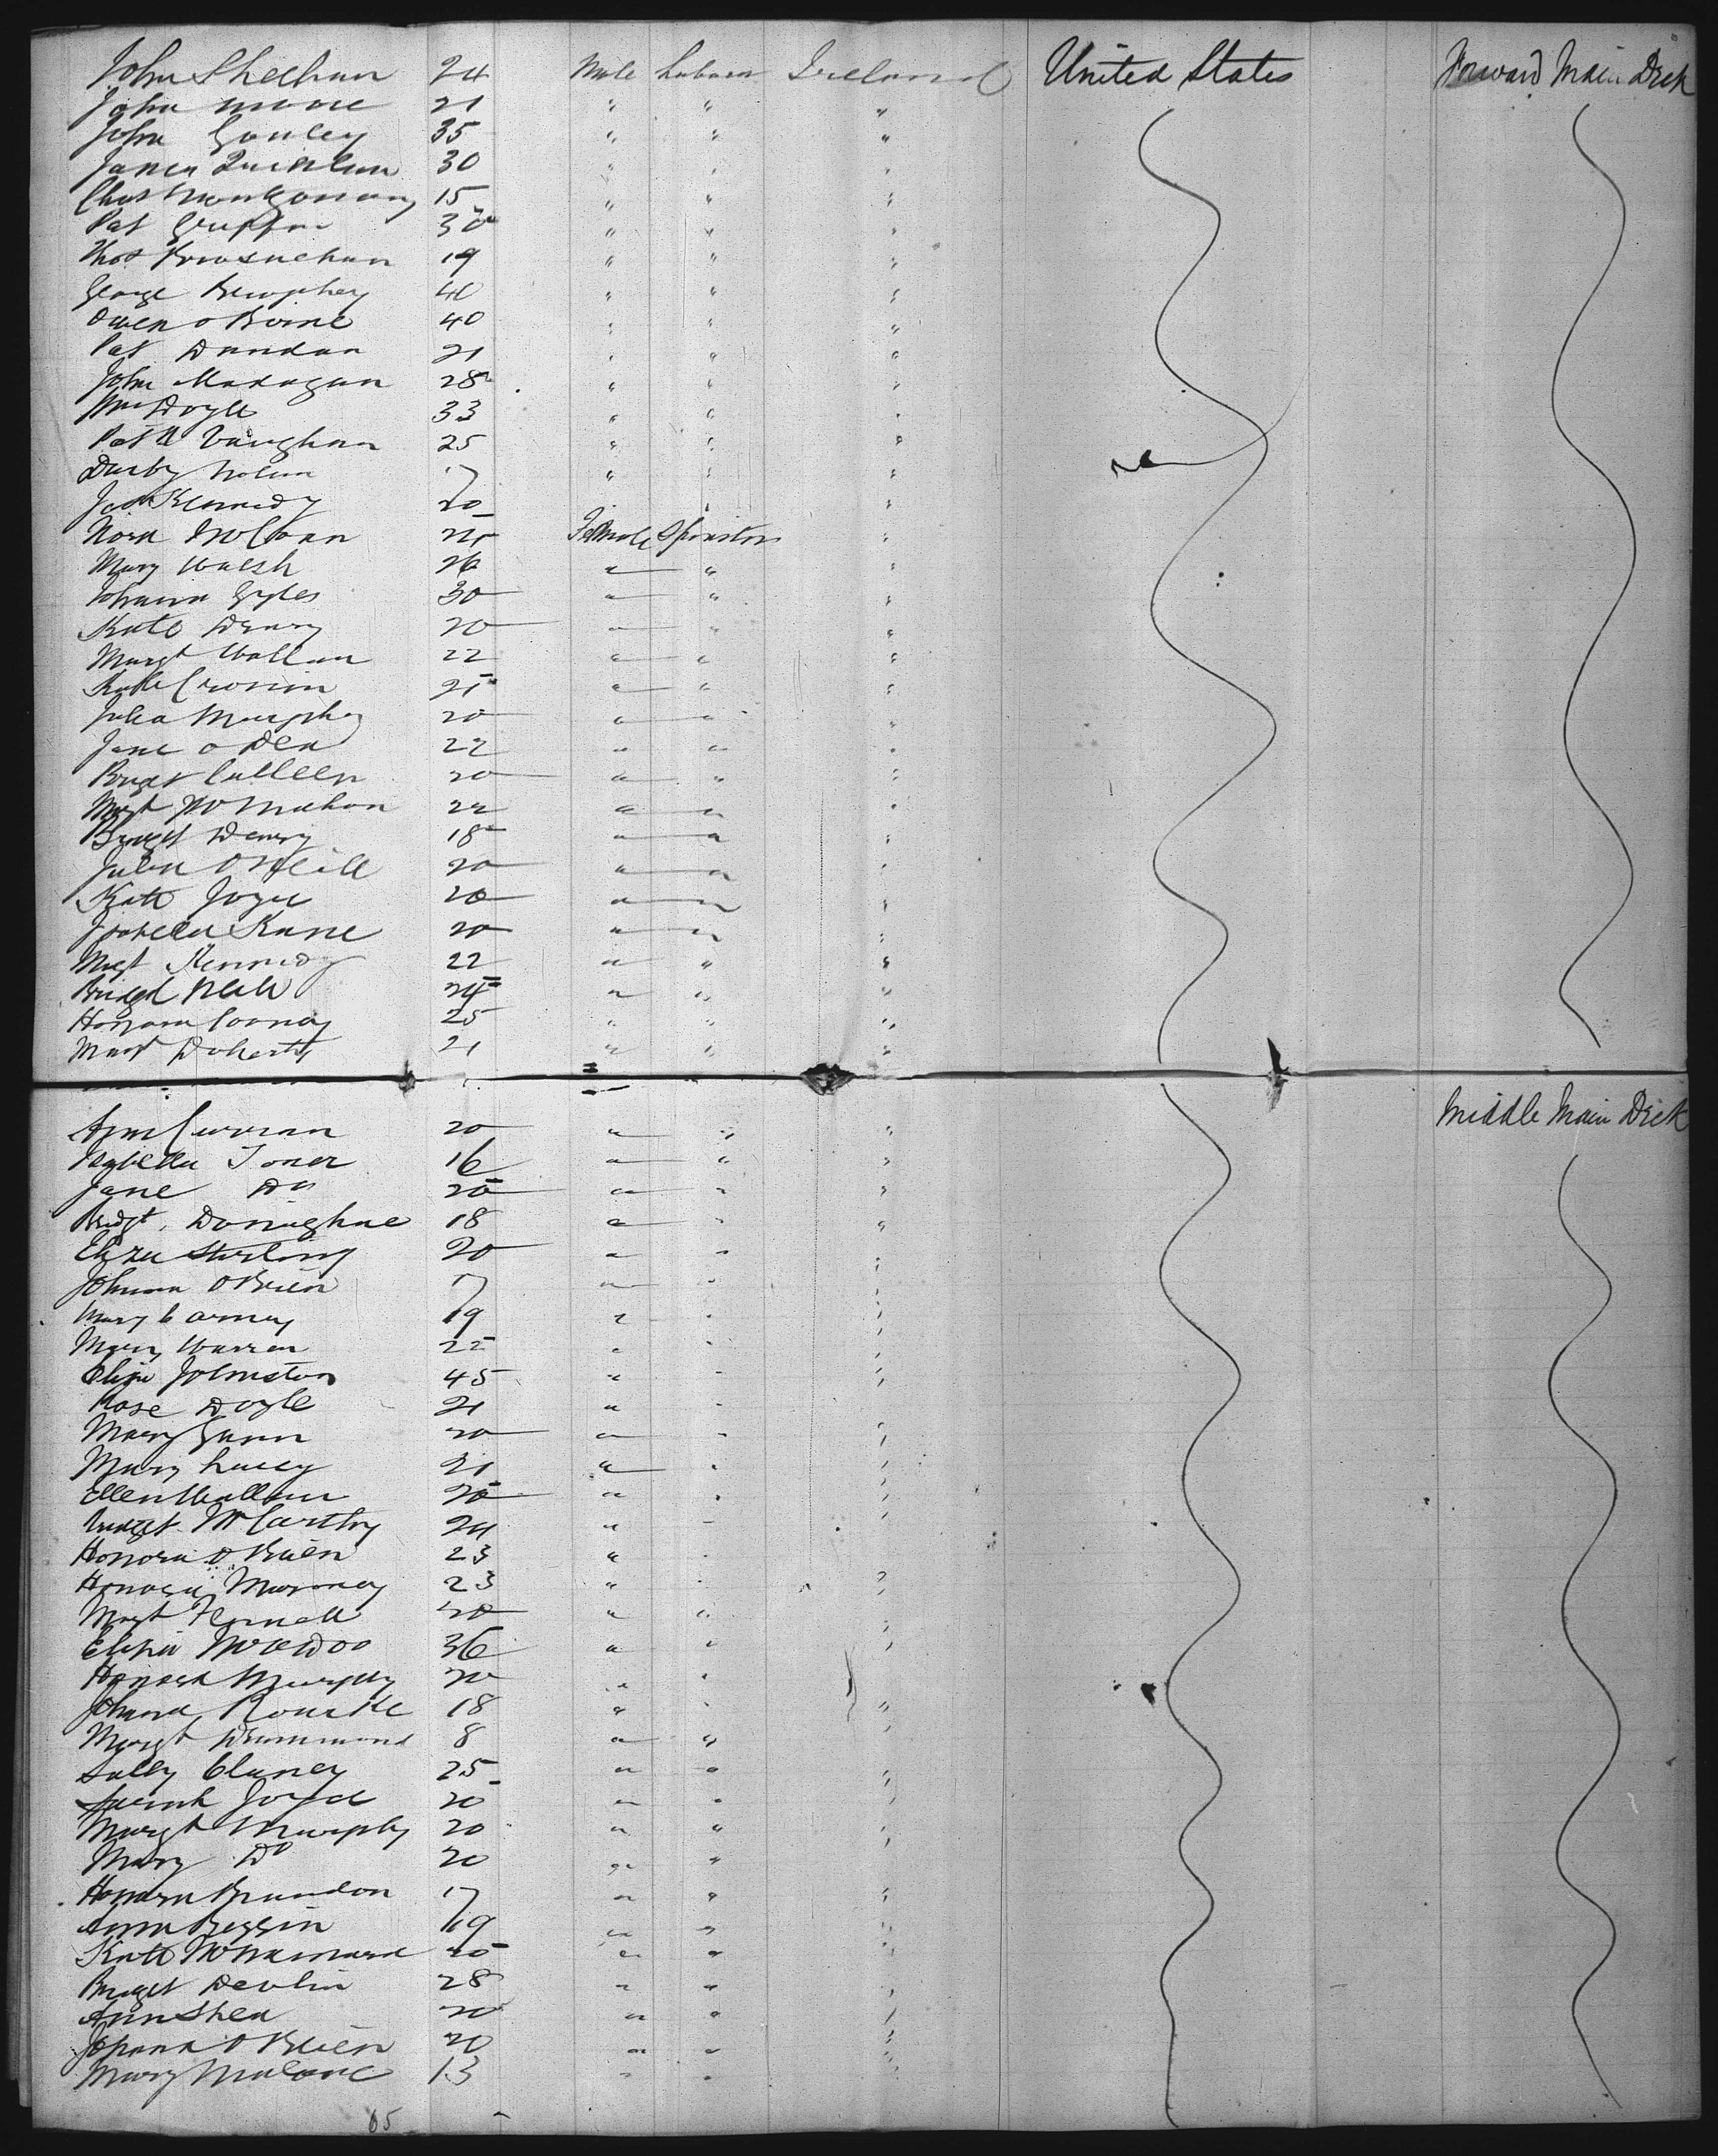 John Sheehan 24 Male Labourer Ireland United States Forward Main Deck
John Moore 21 " " "
John Gouley 35 " " "
James Quinlan 30 " " "
Chas Montgomery 15 " " "
Pat Griffin 30 " " "
Thos Brosnehan 19 " " "
George 40 " " "
Owen O Boine 40 " " "
Pat Dundon 21 " " "
John Madagan 28 " " "
Wm Doyle 33 " " "
Patk Vaughan 25 " " "
Darby Nolan 17 " " "
Jas Kennedy 20 " " "
Nora 25 Female Spinster "
Mary Walsh 26 " " "
Johanna Gyles 30 " " "
Kate Drury 20 " " "
Margt Wallace 22 " " "
Kate Cronin 25 " " "
Julia Murphy 20 " " "
Jane O Dea 22 " " "
Bridget Culleen 20 " " "
Margt McMahon 22 " " "
Bridget Denry 18 " " "
Julia O Neill 20 " " "
Kate Joyce 20 " " "
Isabella Kane 20 " " "
Margt Kennedy 22 " " "
Bridget Neill 24 " " "
Honora Cooney 25 " " "
Margt Doherty 21 " " "
Middle Main Deck
Ann Curran 20 " " "
Isabella Toner 16 " " "
Jane Do 20 " " "
Bridgt Donaghue 18 " " "
Eliza Sterling 20 " " "
Johanna O Brien 17 " " "
Mary Carney 19 " " "
Mary Warren 22 " " "
Eliza Johnston 45 " " "
Rose Doyle 21 " " "
Mary Gunn 20 " " "
Mary Lucey 21 " " "
Ellen Wallace 20 " " "
Bridget McCarthy 24 " " "
Honora O Brien 23 " " "
Honora Muroney 23 " " "
Margt Fennell 20 " " "
Eliza McAdoo 36 " " "
Honora Murphy 20 " " "
Johana Rourke 18 " " "
Margt Drummond 8 " " "
Sally Clancy 25 " " "
Sarah Joyce 20 " " "
Margt Murphy 20 " " "
Mary Do 20 " " "
Honora Brandon 17 " " "
Anna Beggin 19 " " "
Kate McNamara 20 " " "
Bridget Devlin 28 " " "
Ann Shea 20 " " "
Johana O Brien 20 " " "
Mary Malone 13 " " "
65